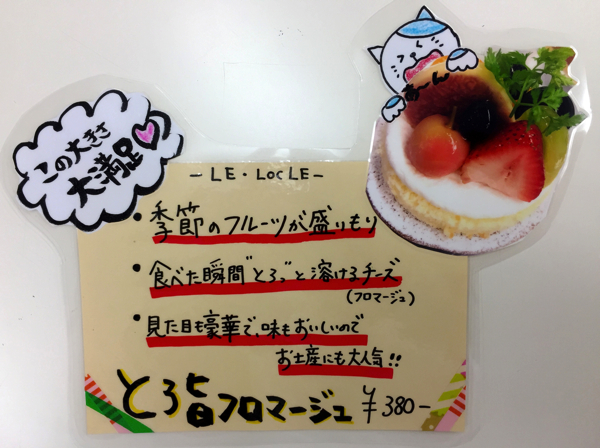 あ〜ん
この大きさ
大満足
- LE・LOCLE -
・季節のフルーツが盛りもり
・食べた瞬間"とろっ"と溶けるチーズ
(フロマージュ)
・見た目も豪華で、味もおいしいので
お土産にも大人気!!
とろ旨フロマージュ ¥380-